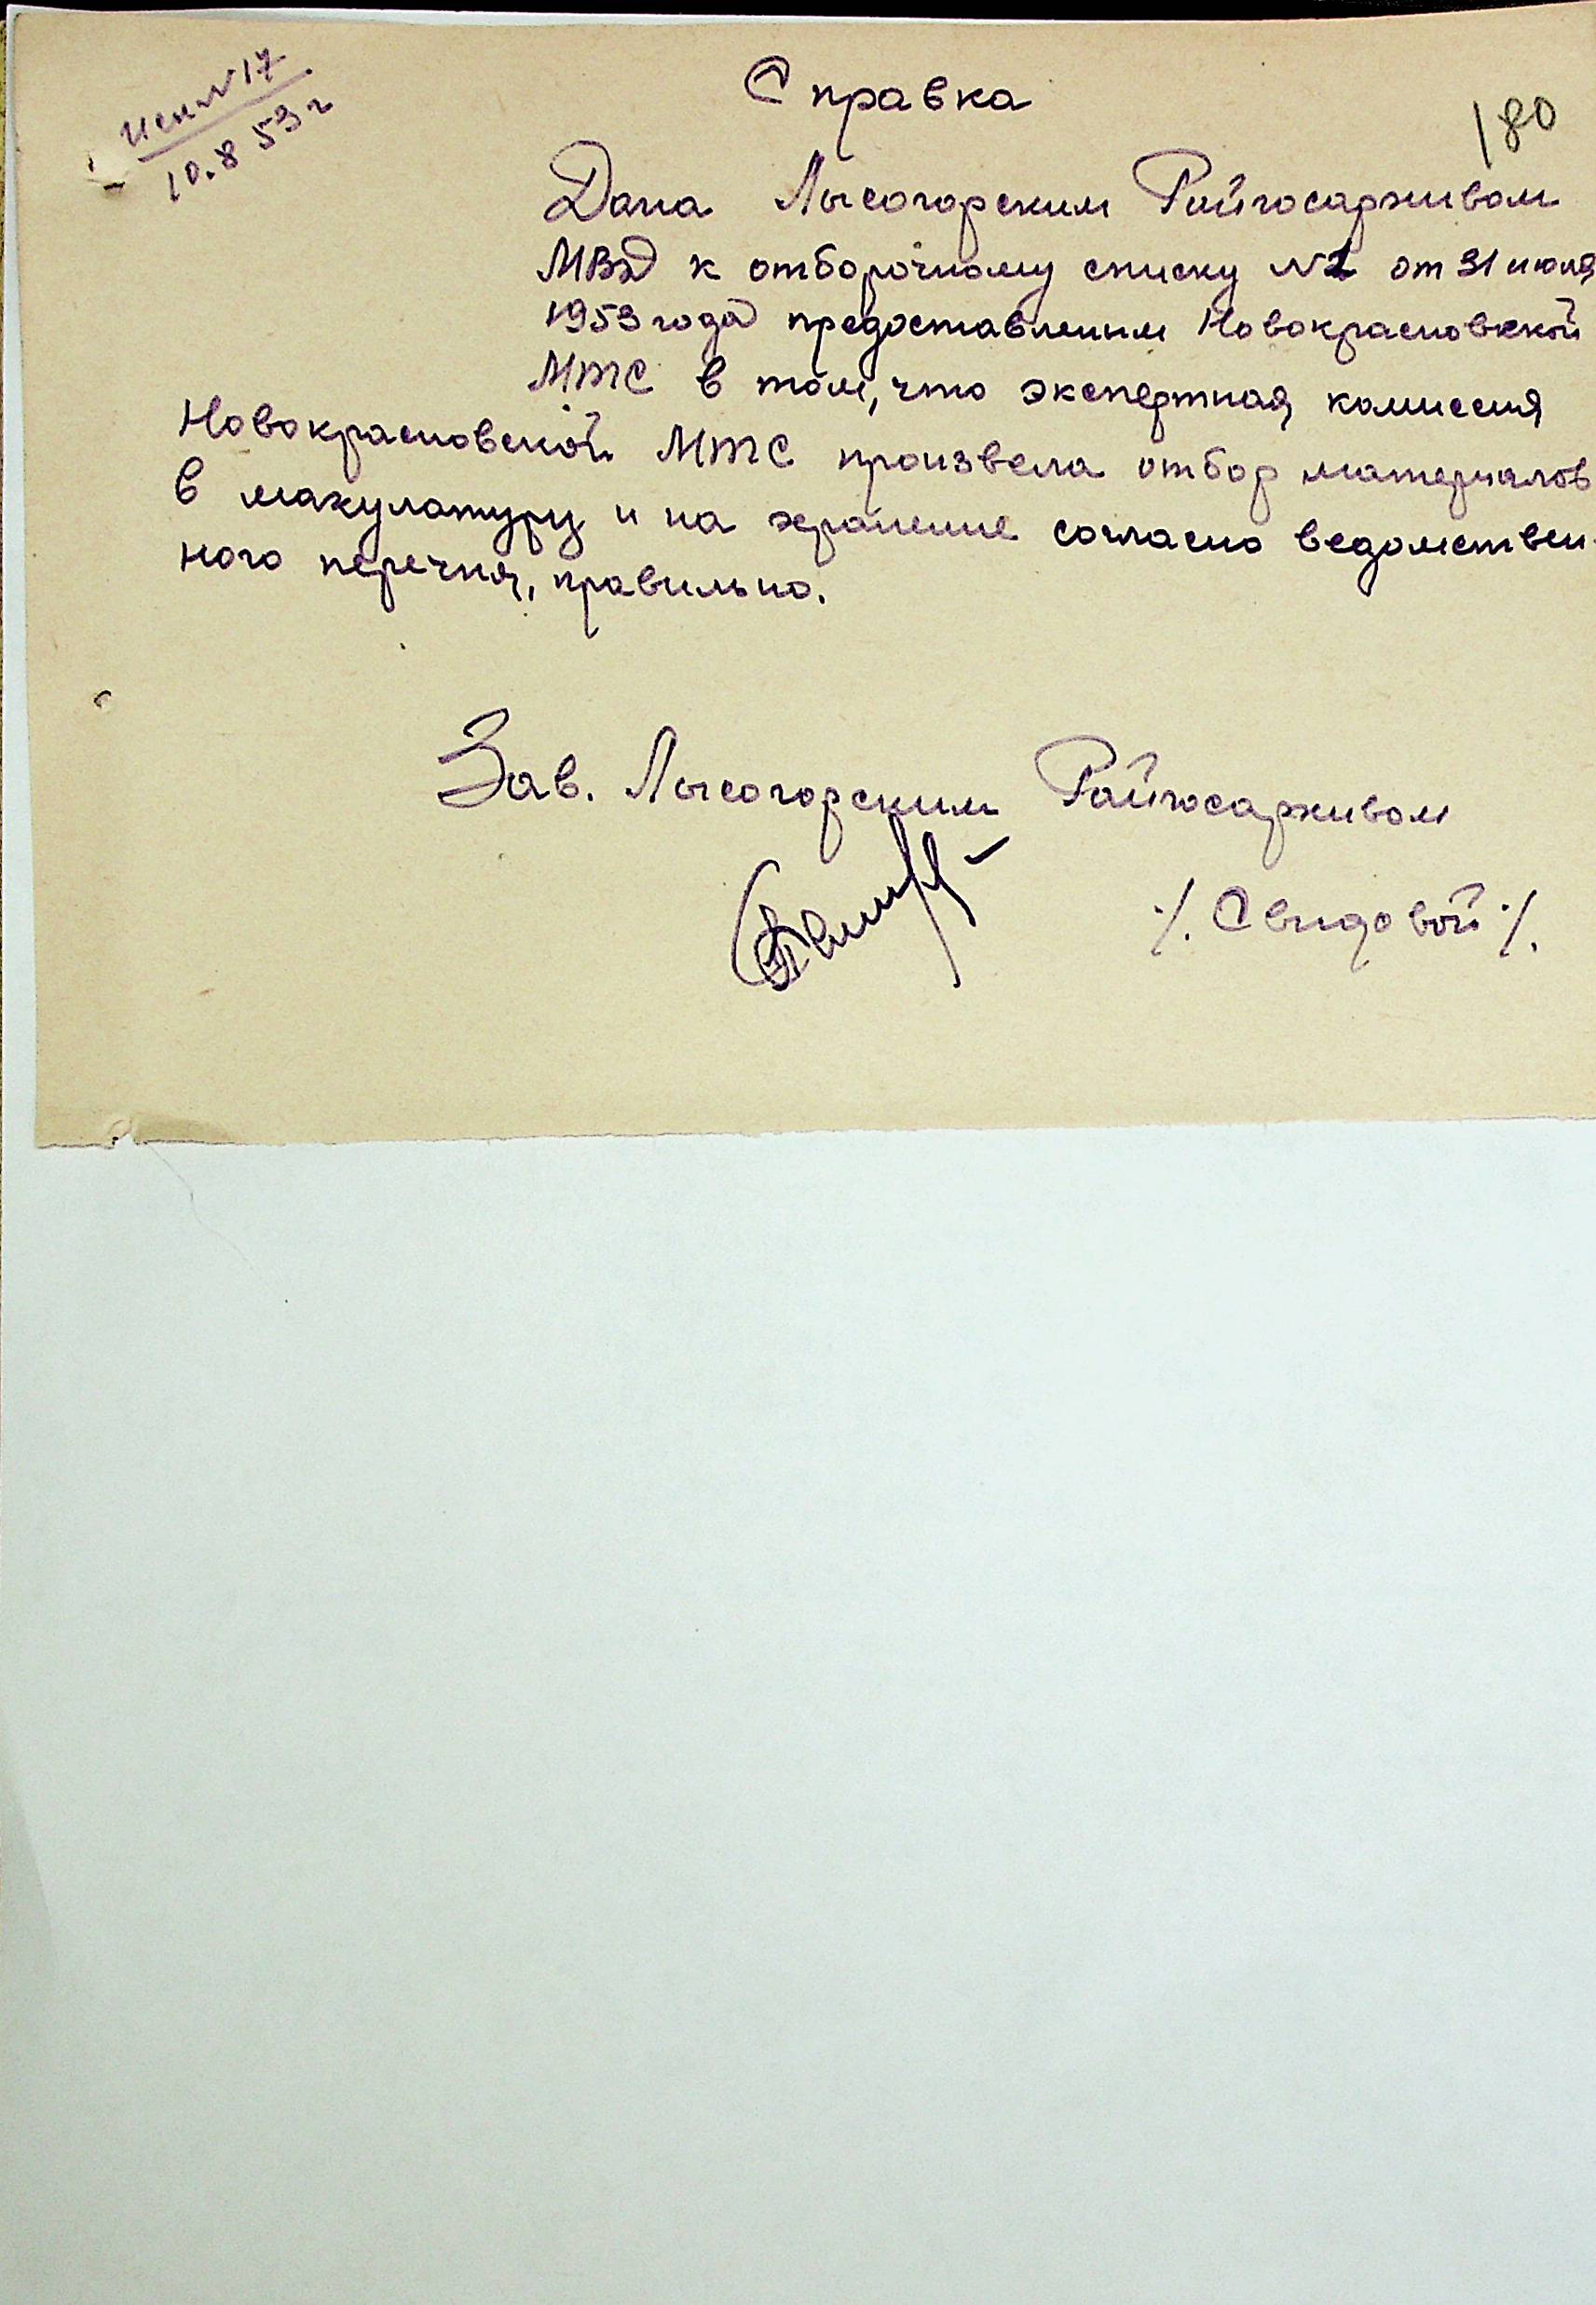 исх №17
10.8 53 г
Справка
180
Дана Лысогорским Райгосархивом
МВД к отборочному списку №1 от 31 июля
1953 года предоставленным Новокрасновской
МТС в том, что экспертная комиссия
Новокрасновской МТС произвела отбор материалов
в макулатуру и на хранение согласно ведомствен-
ного перечня, правильно.
Зав. Лысогорским Райгосархивом
/. Свидовой /.